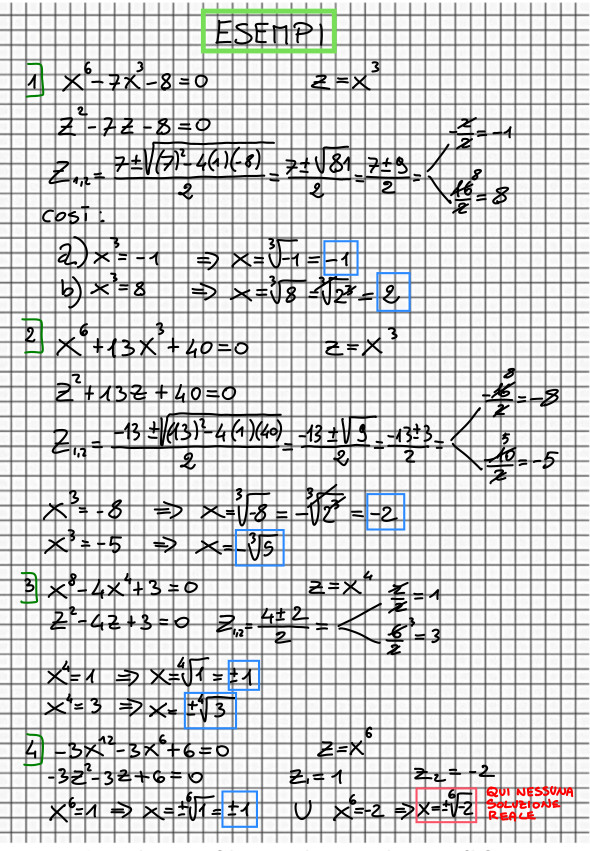 ESEMPI
1 x⁶-7x³-8=0 z=x³
z²-7z-8=0
z₁,₂ = (7±√((7)²-4(1)(-8)))/2 = (7±√81)/2 = (7±9)/2 = -2/2=-1
16/2 8 = 8
così:
a) x³=-1 ⇒ x=³√-1 = -1
b) x³=8 ⇒ x=³√8=³√2³ = 2
2 x⁶+13x³+40=0 z=x³
z²+13z+40=0
z₁,₂ = (-13±√((13)²-4(1)(40)))/2 = (-13±√9)/2 = (-13±3)/2 = -16/2 8 =-8
-10/2 5 =-5
x³=-8 ⇒ x=³√-8 = -³√2³ = -2
x³=-5 ⇒ x=-³√5
3 x⁸-4x⁴+3=0 z=x⁴
z²-4z+3=0 z₁,₂ = (4±2)/2 = 2/2=1
6/2 3 =3
x⁴=1 ⇒ x=⁴√1=±1
x⁴=3 ⇒ x=±⁴√3
4 -3x¹²-3x⁶+6=0 z=x⁶
-3z²-3z+6=0 z₁=1 z₂=-2
x⁶=1 ⇒ x=±⁶√1=±1 ∪ x⁶=-2 ⇒ x=±⁶√-2
QUI NESSUNA
SOLUZIONE
REALE